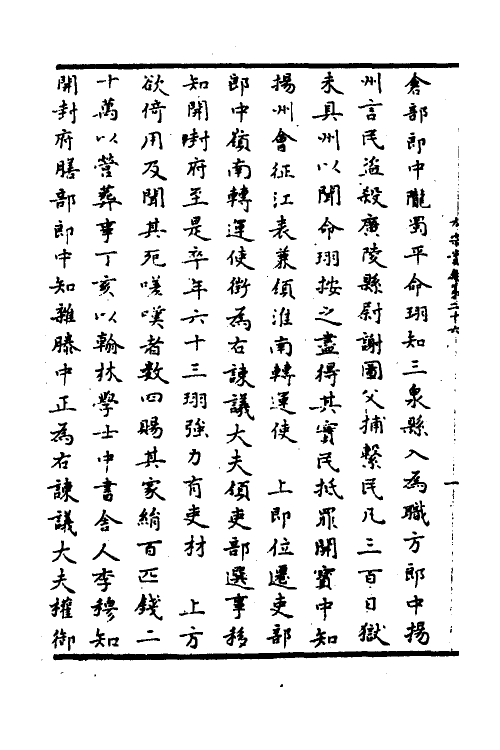 倉部郎中隴蜀平命珝知三泉縣入為職方郎中揚
州言民盜殺廣陵縣尉謝圖父捕繫民凡三百日獄
未具州以聞命珝按之盡得其實民抵罪開寶中知
揚州會征江表兼領淮南轉運使　上即位遷吏部
郎中嶺南轉運使銜為右諫議大夫領吏部選事移
知開封府至是卒年六十三珝強力有吏材　上方
欲倚用及聞其死嗟嘆者數四賜其家絹百匹錢二
十萬以營葬事丁亥以翰林學士中書舍人李穆知
開封府膳部郎中知雜滕中正為右諫議大夫權御